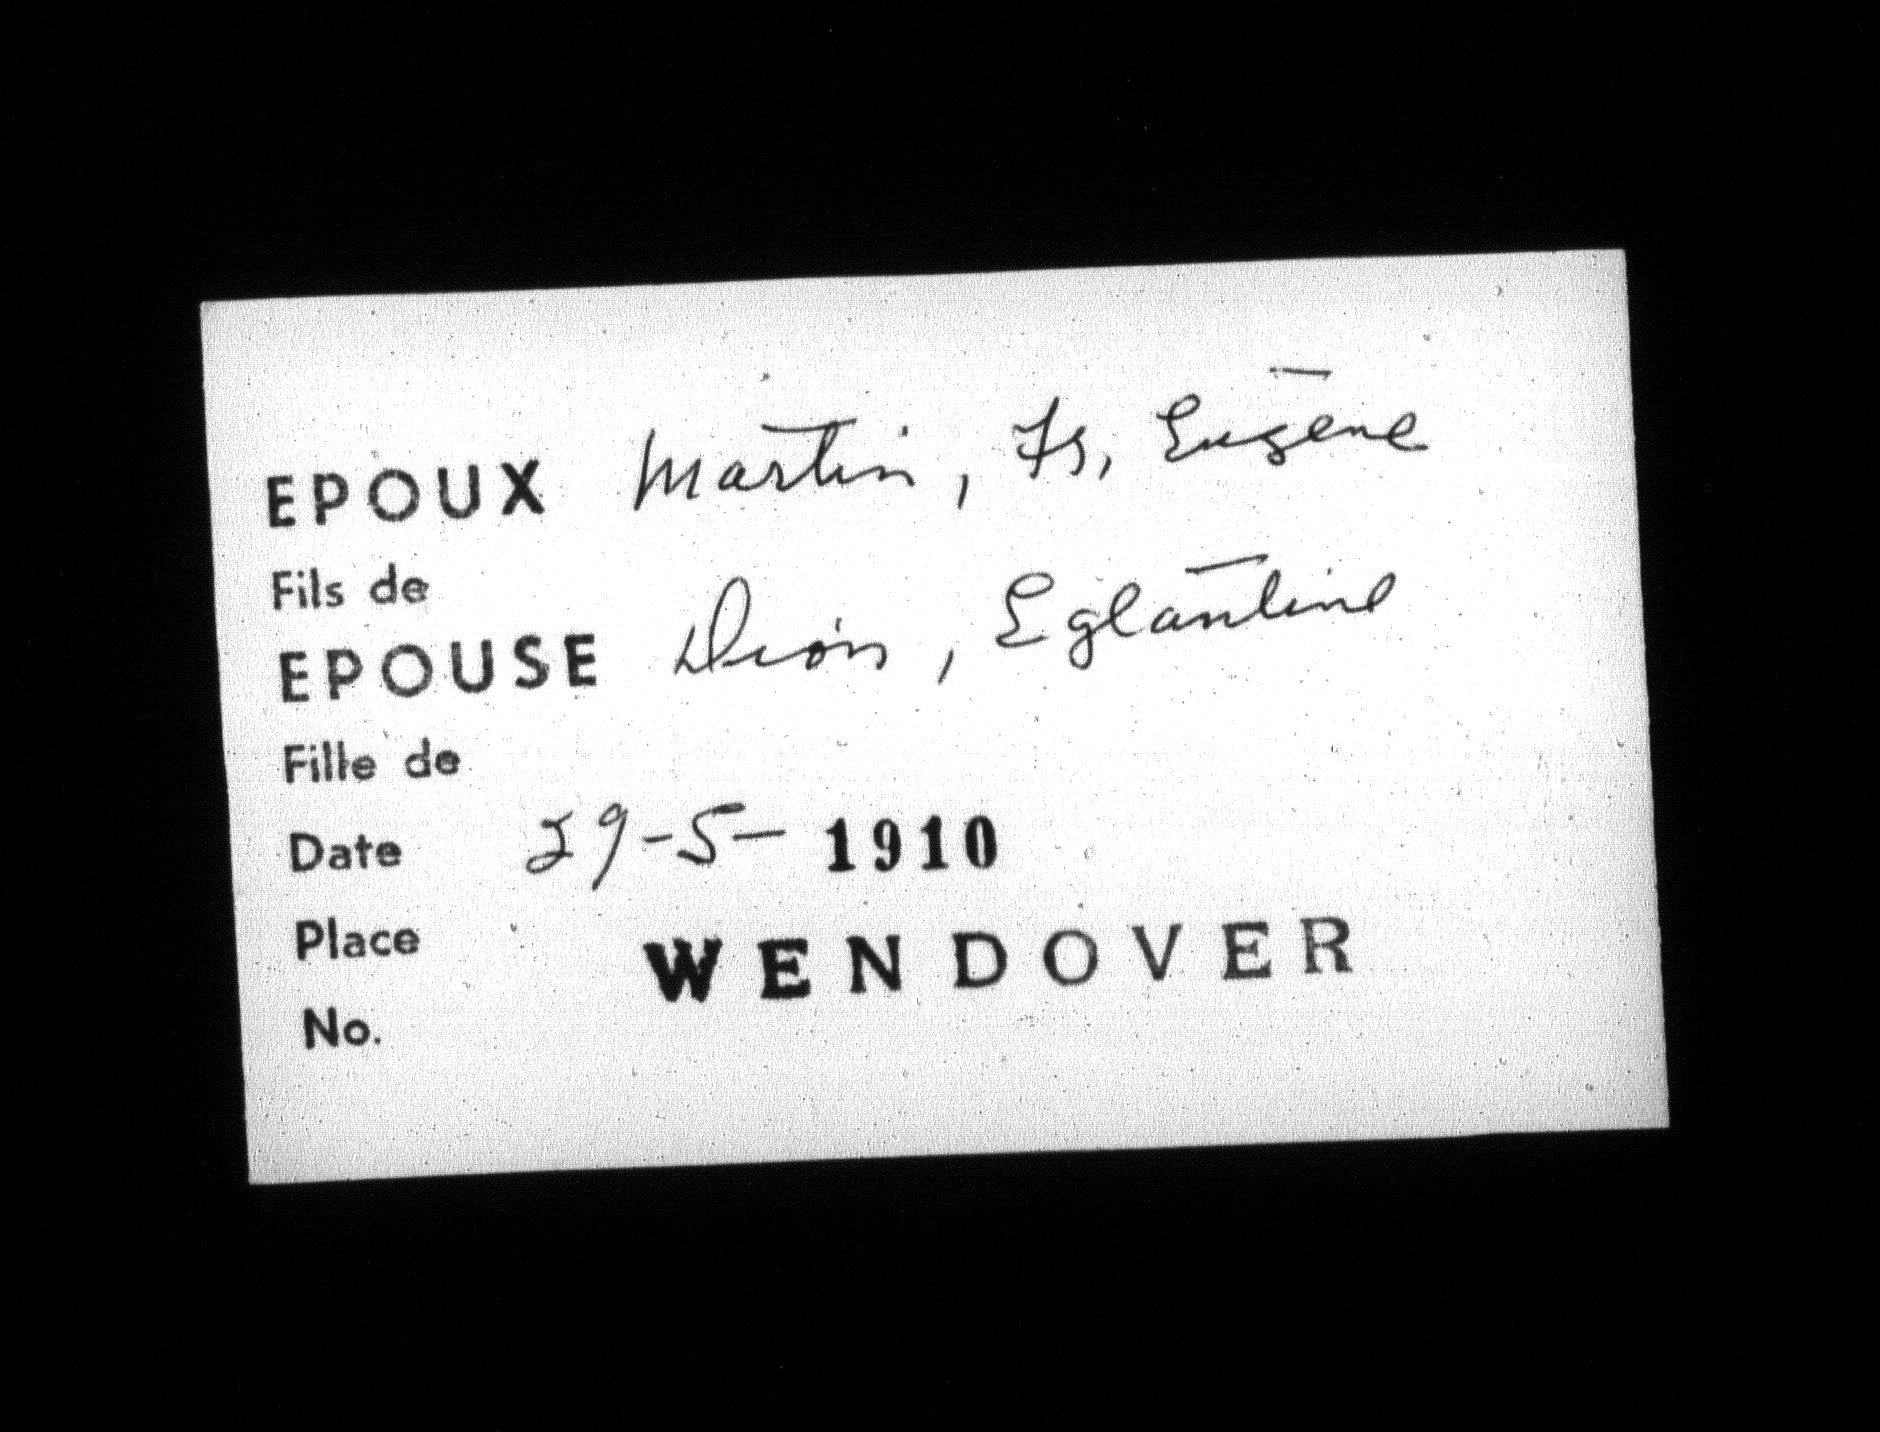 EPOUX Martin, Fs, Eugène
Fils de
EPOUSE Dion, Eglantine
Fille de
Date 29-5-1910
Place WENDOVER
No.